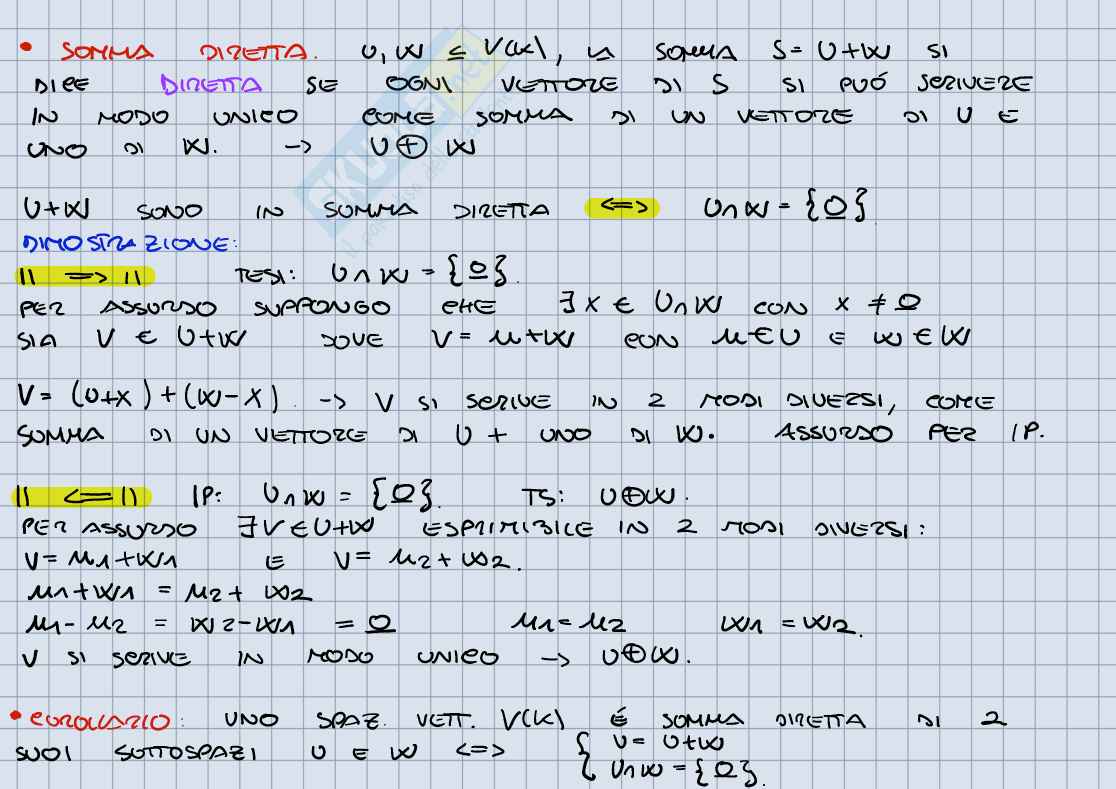 • SOMMA DIRETTA. U, W ≤ V(K), LA SOMMA S = U+W SI
DICE DIRETTA SE OGNI VETTORE DI S SI PUÓ SCRIVERE
IN MODO UNICO COME SOMMA DI UN VETTORE DI U E
UNO DI W. -> U⊕W
U+W SONO IN SOMMA DIRETTA <=> U∩W = {0}
DIMOSTRAZIONE:
" => " TESI: U∩W = {0}.
PER ASSURDO SUPPONGO CHE ∃ X ∈ U∩W CON X ≠ 0
SIA V ∈ U+W DOVE V = u+w CON u ∈ U E w ∈ W
V = (U+X) + (W-X). -> V SI SCRIVE IN 2 MODI DIVERSI, COME
SOMMA DI UN VETTORE DI U + UNO DI W. ASSURDO PER IP.
" <= " IP: U∩W = {0}. TS: U⊕W.
PER ASSURDO ∃ V ∈ U+W ESPRIMIBILE IN 2 MODI DIVERSI:
V = u1+w1 E V = u2+w2.
u1+w1 = u2+w2
u1-u2 = w2-w1 = 0 u1 = u2 w1 = w2.
V SI SCRIVE IN MODO UNICO -> U⊕W.
• COROLLARIO: UNO SPAZ. VETT. V(K) É SOMMA DIRETTA DI 2
SUOI SOTTOSPAZI U E W <=> { V = U+W
U∩W = {0}.